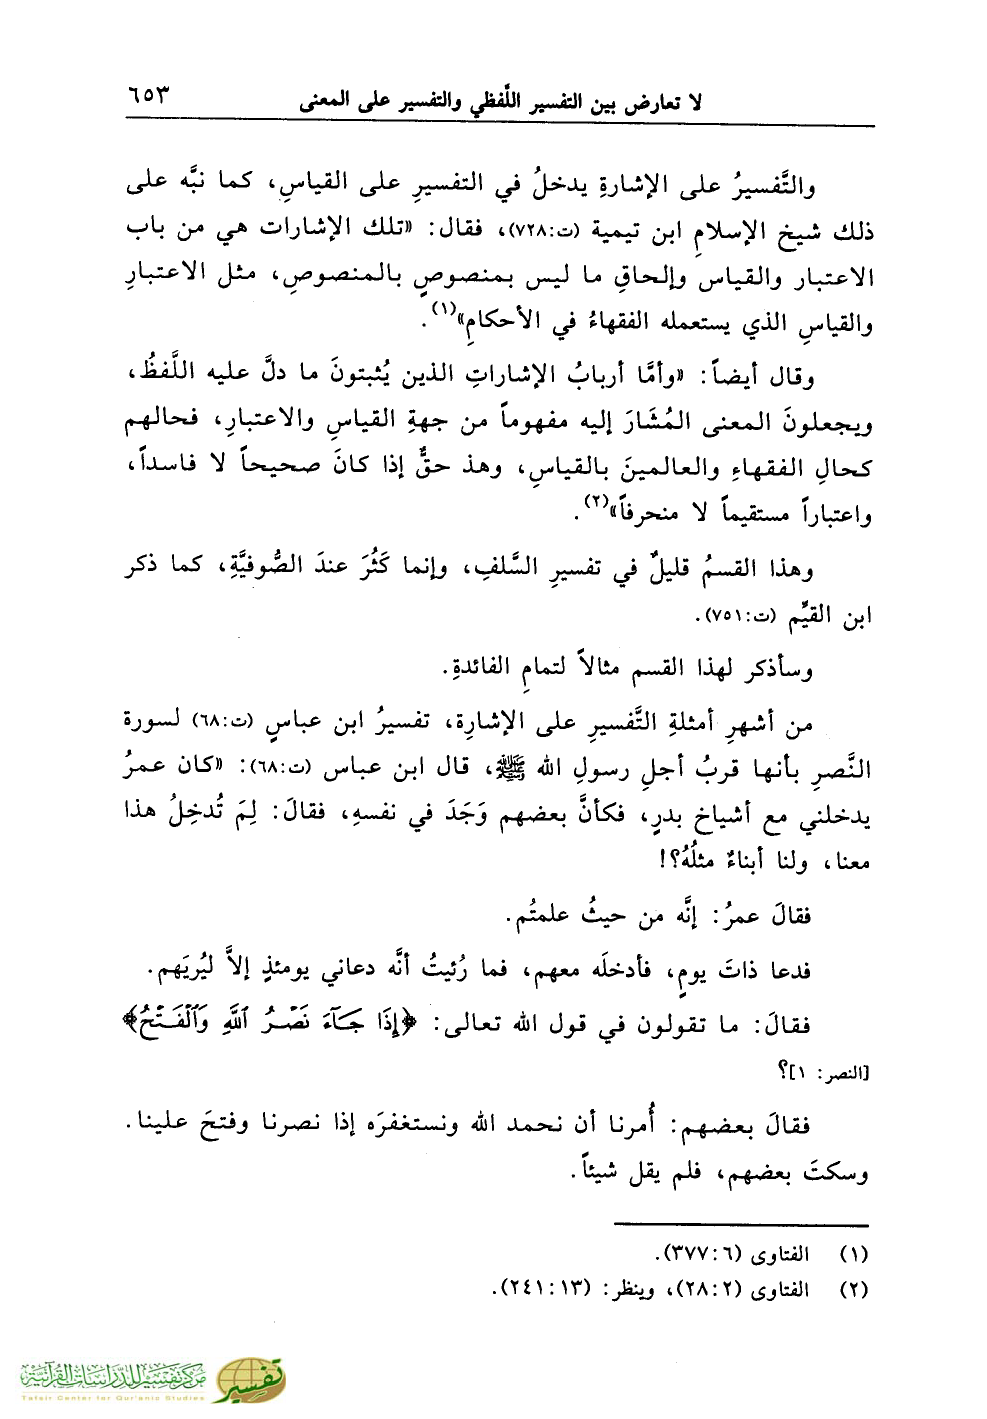 لا تعارض بين التفسير اللَّفظي والتفسير على المعنى ٦٥٣
والتَّفسيرُ على الإشارةِ يدخلُ في التفسيرِ على القياسِ، كما نبَّه على
ذلك شيخ الإسلامِ ابن تيمية (ت:٧٢٨)، فقال: «تلك الإشارات هي من باب
الاعتبار والقياس وإلحاقِ ما ليس بمنصوصٍ بالمنصوصِ، مثل الاعتبارِ
والقياسِ الذي يستعمله الفقهاءُ في الأحكامِ»(١).
وقال أيضاً: «وأمَّا أربابُ الإشاراتِ الذين يُثبتونَ ما دلَّ عليه اللَّفظُ،
ويجعلونَ المعنى المُشَارَ إليه مفهوماً من جهةِ القياسِ والاعتبارِ، فحالهم
كحالِ الفقهاءِ والعالمينَ بالقياسِ، وهذ حقٌّ إذا كانَ صحيحاً لا فاسداً،
واعتباراً مستقيماً لا منحرفاً»(٢).
وهذا القسمُ قليلٌ في تفسيرِ السَّلفِ، وإنما كَثُرَ عندَ الصُّوفيَّةِ، كما ذكر
ابن القيِّم (ت:٧٥١).
وسأذكر لهذا القسم مثالاً لتمامِ الفائدةِ.
من أشهرِ أمثلةِ التَّفسيرِ على الإشارة، تفسيرُ ابن عباسٍ (ت:٦٨) لسورة
النَّصرِ بأنها قربُ أجلِ رسولِ الله ﷺ، قال ابن عباس (ت:٦٨): «كان عمرُ
يدخلني مع أشياخ بدرٍ، فكأنَّ بعضهم وَجَدَ في نفسهِ، فقالَ: لِمَ تُدخِلُ هذا
معنا، ولنا أبناءٌ مثلُهُ؟!
فقالَ عمرُ: إنَّه من حيثُ علمتُم.
فدعا ذاتَ يومٍ، فأدخلَه معهم، فما رُئيتُ أنَّه دعاني يومئذٍ إلاَّ ليُريَهم.
فقالَ: ما تقولون في قول الله تعالى: ﴿إِذَا جَآءَ نَصۡرُ ٱللَّهِ وَٱلۡفَتۡحُ﴾
[النصر: ١]؟
فقالَ بعضهم: أُمرنا أن نحمد الله ونستغفرَه إذا نصرنا وفتحَ علينا.
وسكتَ بعضهم، فلم يقل شيئاً.
(١) الفتاوى (٦:٣٧٧).
(٢) الفتاوى (٢:٢٨)، وينظر: (١٣:٢٤١).
مركز تفسير للدراسات القرآنية تفسير
Tafsir Center for Qur'anic Studies